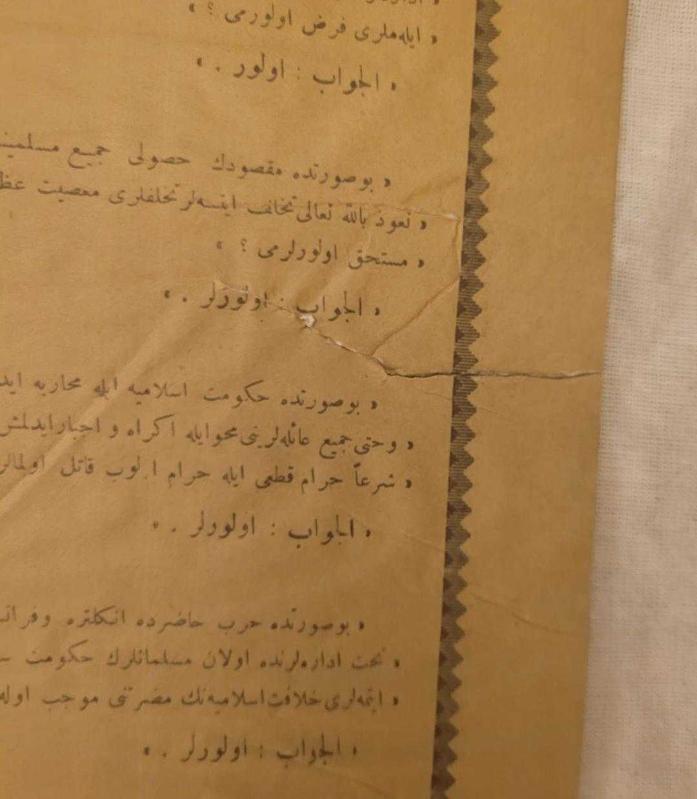 « ایله‌ملری فرض اولورمی ؟ »
« الجواب : اولور . »
« بوصورتده مقصودك حصولی جمیع مسلمینـ
« نعوذ بالله تعالی تخلف ایتسه‌لر تخلفلری معصیت عظـ
« مستحق اولورلرمی ؟ »
« الجواب : اولورلر . »
« بوصورتده حکومت اسلامیه ایله محاربه ایدـ
« وحتی جمیع عائله‌لرینی محوایله اکراه و اجبارایدلمش
« شرعاً حرام قطعی ایله حرام اولوب قاتل اولمالر
« الجواب : اولورلر . »
« بوصورتده حرب حاضرده انکلتره وفرانـ
« تحت اداره‌لرنده اولان مسلمانلرك حکومت سـ
« ایتمه‌لری خلافت‌اسلامیه‌نك مضرتنی موجب اوله
« الجواب : اولورلر . »